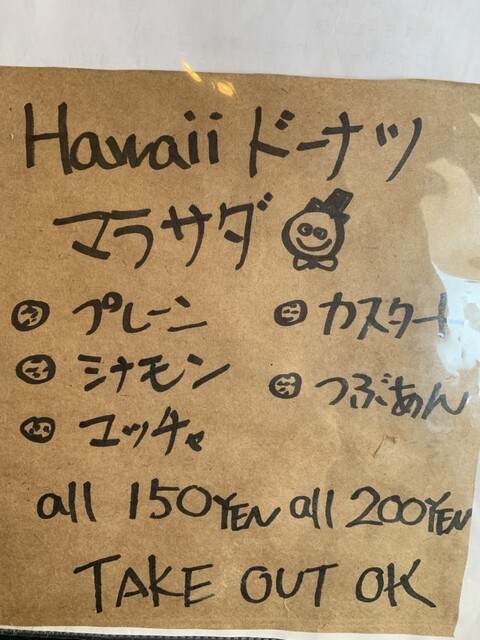 Hawaii ドーナツ
マラサダ
プレーン
シナモン
マッチャ
all 150YEN
カスタード
つぶあん
all 200YEN
TAKE OUT OK